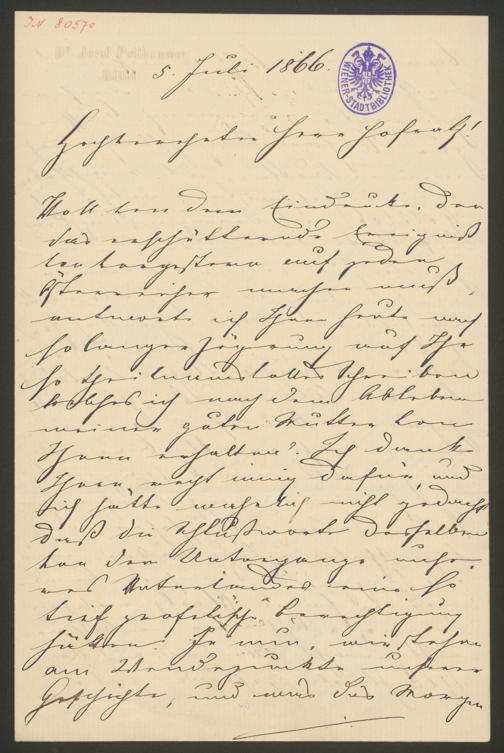 I.N 80570
Dr. Josef
5. Juli 1866.
WIENER-STADTBIBLIOTHEK
Hochverehrter Herr Hofrath!
Voll von dem Eindrucke, den
das erschütternde Ereigniß
von vorgestern auf jeden
Österreicher machen muß,
antworte ich Ihnen heute nach
so langer Zögerung auf Ihr
so theilnamsvolles Schreiben
welches ich nach dem Ableben
meiner guten Mutter von
Ihnen erhalten. Ich danke
Ihnen recht innig dafür, und
ich hätte wahrlich nicht gedacht
daß die Schlußworte desselben
von dem Untergange unse-
res Vaterlandes eine so
tief profetische Berechtigung
hätten. Ja nun, wir stehen
am Wendepunkte unserer
Geschichte, und was das Morgen